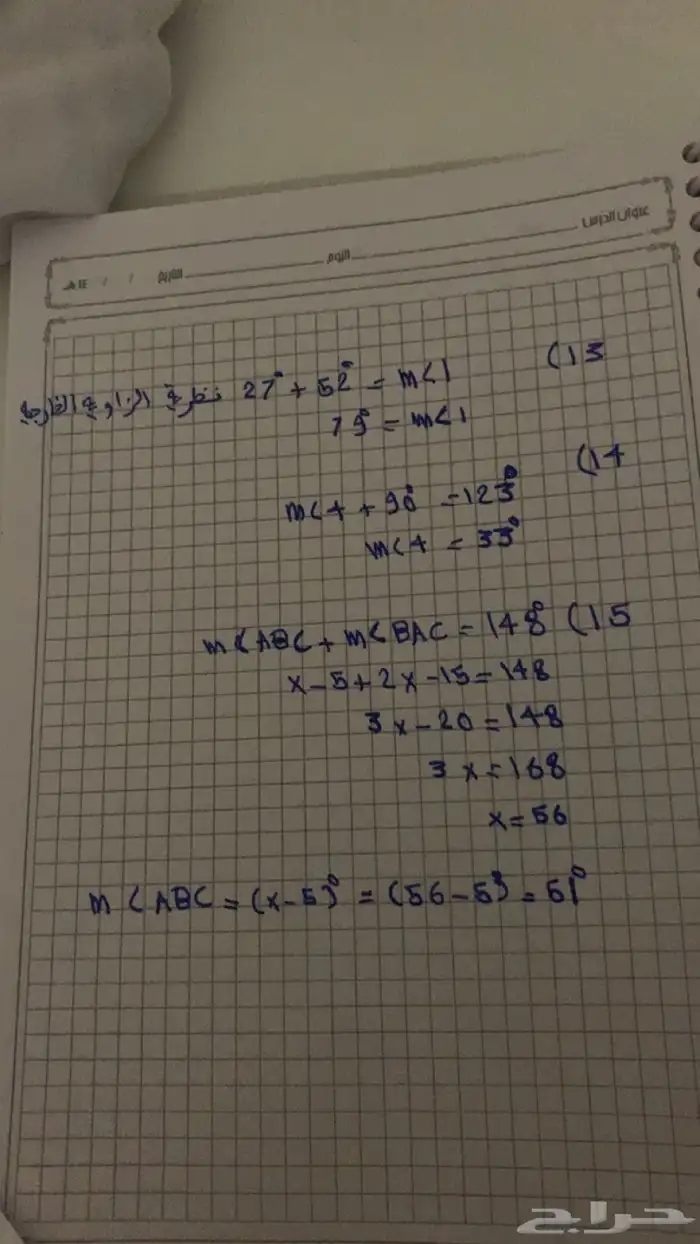 عنوان الدرس
اليوم
التاريخ / / ١٤هـ
(13
27° + 52° = m<1 نظرية الزاوية الخارجية
79° = m<1
(14
m<4 + 90° = 123°
m<4 = 33°
m<ABC + m<BAC = 148° (15
x - 5 + 2x - 15 = 148
3x - 20 = 148
3x = 168
x = 56
m<ABC = (x - 5)° = (56 - 5)° = 51°
حراج